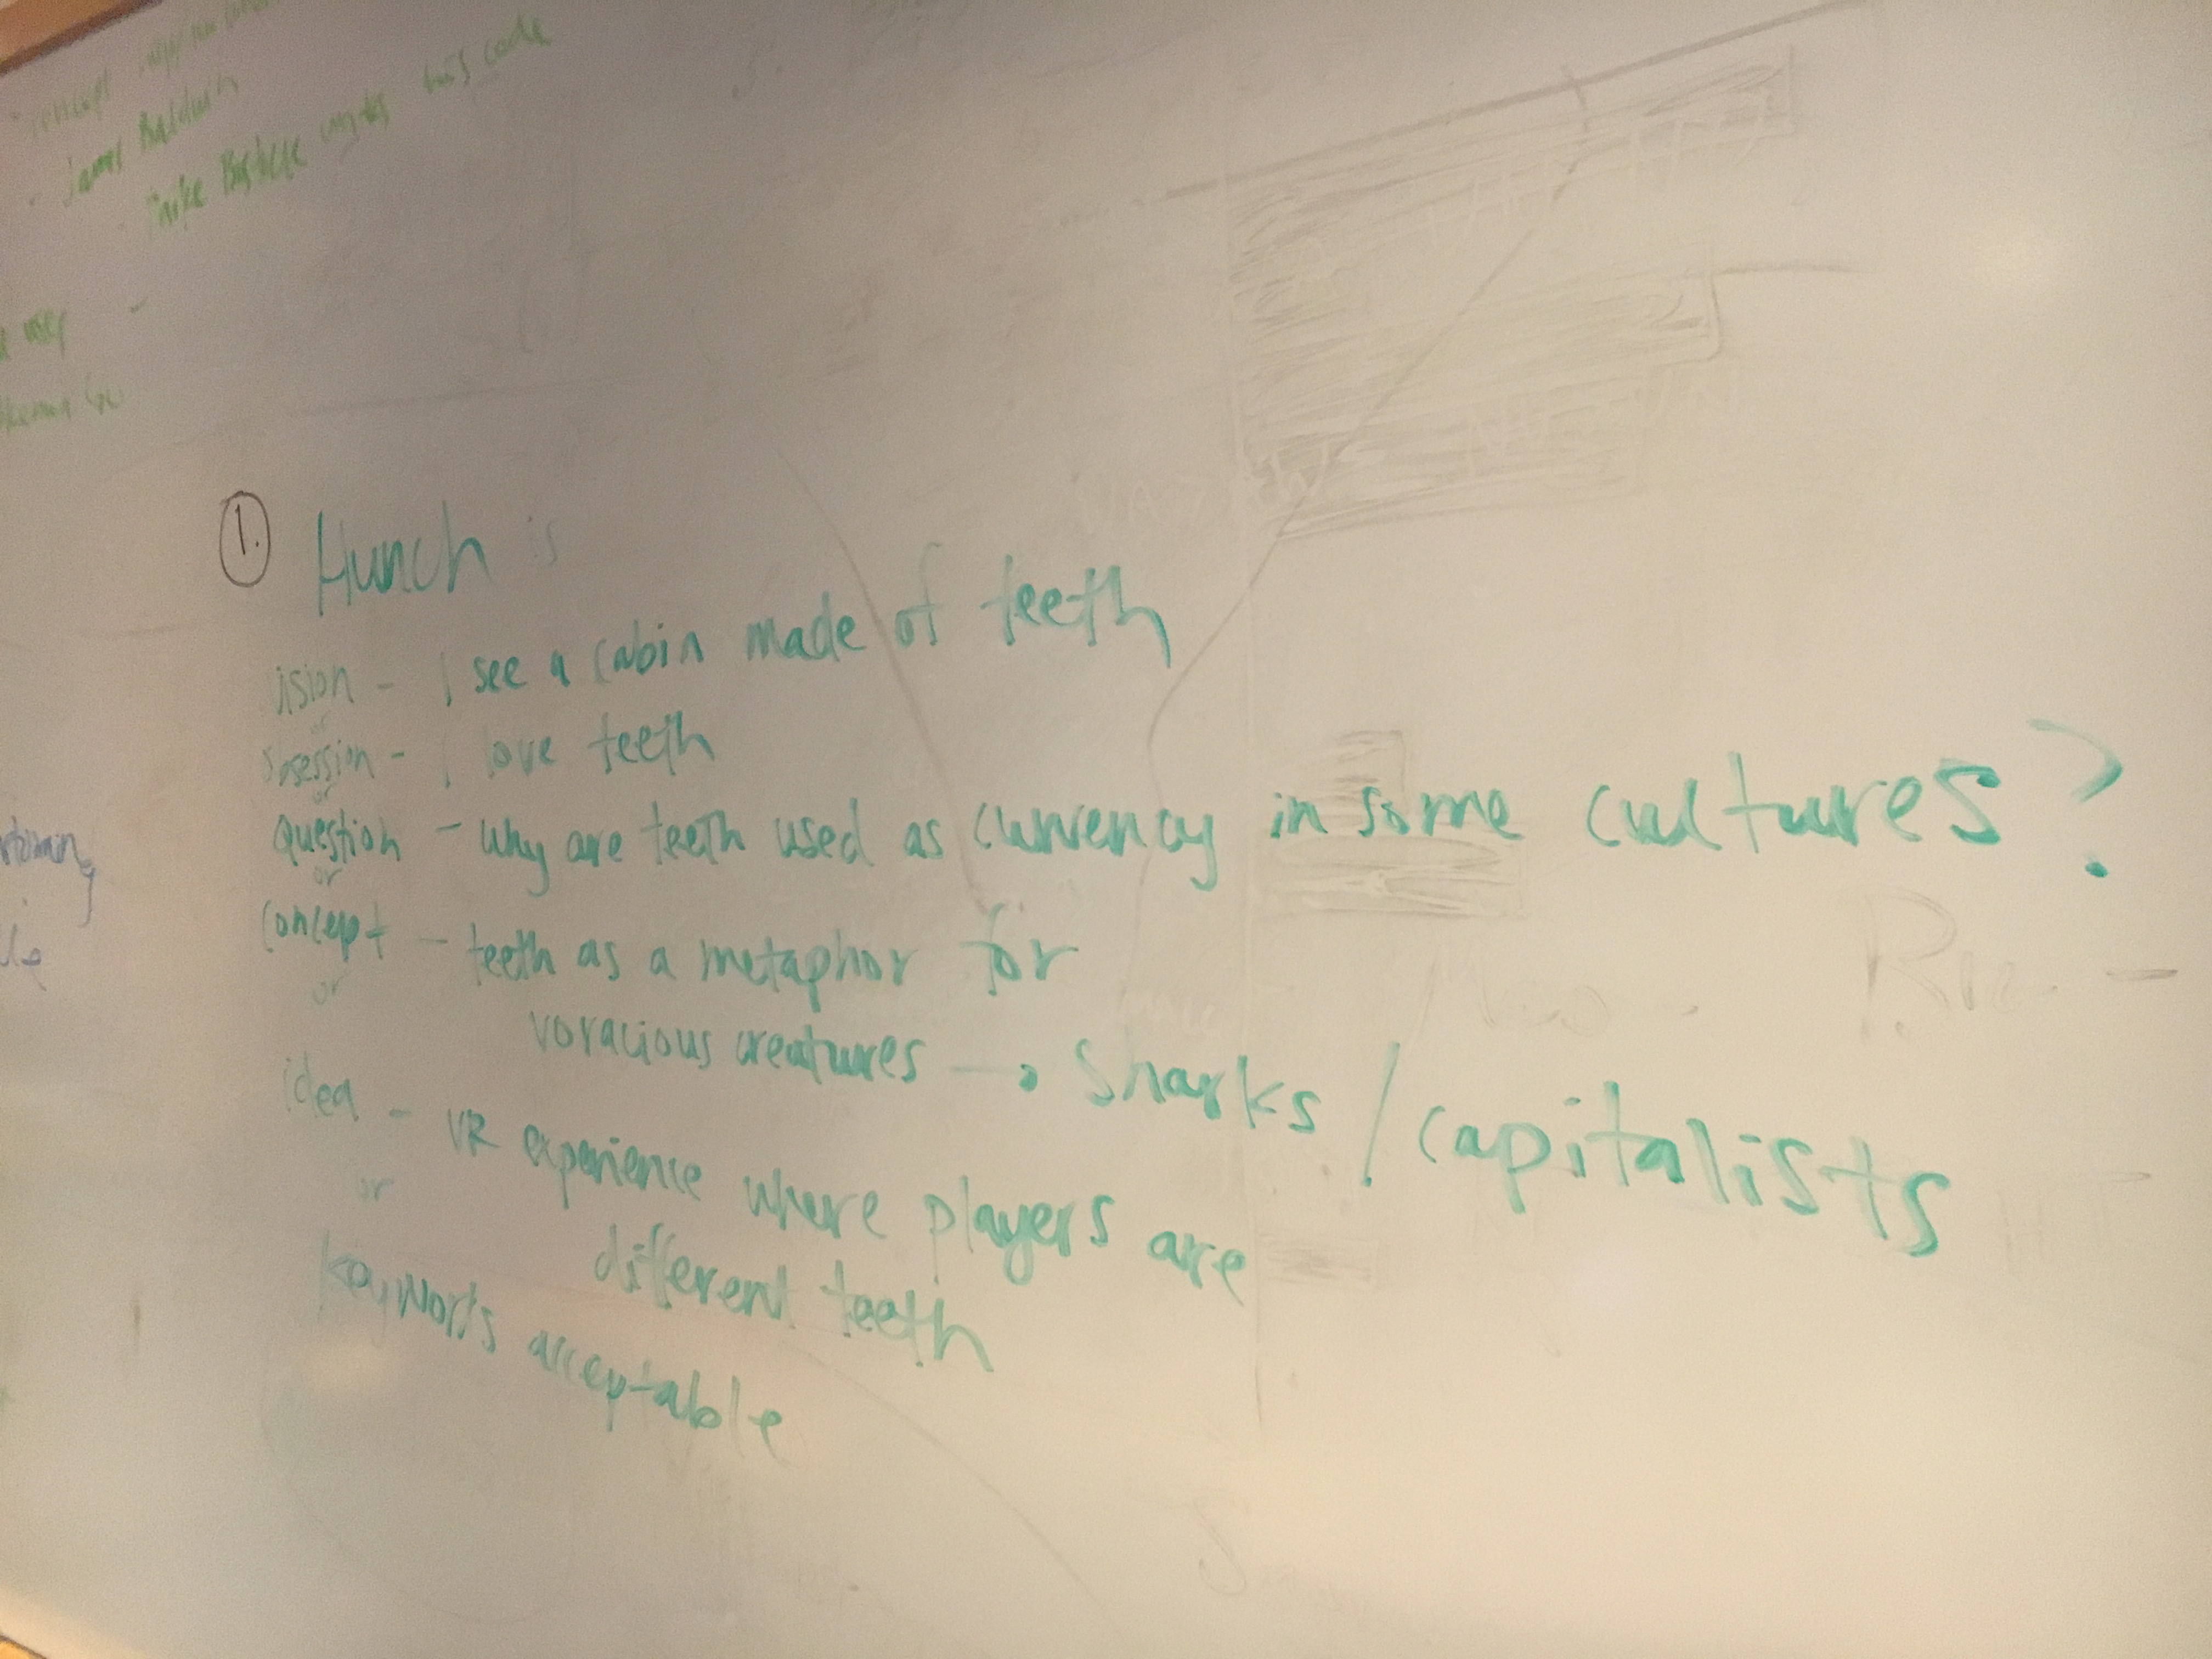 concept
James Baldwin
this code
1. Hunch is
ision - I see a cabin made of teeth
or
obsession - I love teeth
or
question - why are teeth used as currency in some cultures?
or
concept - teeth as a metaphor for
or
voracious creatures → sharks / capitalists
idea - VR experience where players are
or
different teeth
keywords acceptable